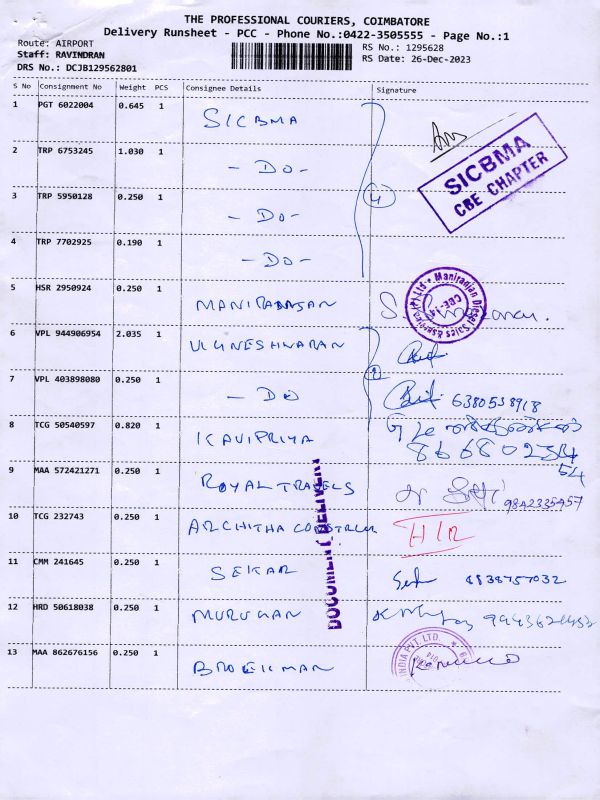 THE PROFESSIONAL COURIERS, COIMBATORE
Delivery Runsheet - PCC - Phone No.:0422-3505555 - Page No.:1
Route: AIRPORT
Staff: RAVINDRAN
DRS No.: DCJB129562801
RS No.: 1295628
RS Date: 26-Dec-2023
S No Consignment No Weight PCS Consignee Details Signature
1 PGT 6022004 0.645 1 SICBMA
SICBMA
CBE CHAPTER
2 TRP 6753245 1.030 1 - DO -
3 TRP 5950128 0.250 1 - DO -
4
4 TRP 7702925 0.190 1 - DO -
5 HSR 2950924 0.250 1 MANIRANJAN
6 VPL 944906954 2.035 1 VIGNESHWARAN
7 VPL 403898080 0.250 1 - DO 6380538918
8 TCG 50540597 0.820 1 KAVIPRIYA
9 MAA 572421271 0.250 1 ROYAL TRAVELS
10 TCG 232743 0.250 1 ARCHITHA H/R
11 CMM 241645 0.250 1 SEKAR
12 HRD 50618038 0.250 1 MURUGAN
13 MAA 862676156 0.250 1 BROEKMAN
DOCUMENT DELIVERY
INDIA PVT. LTD.